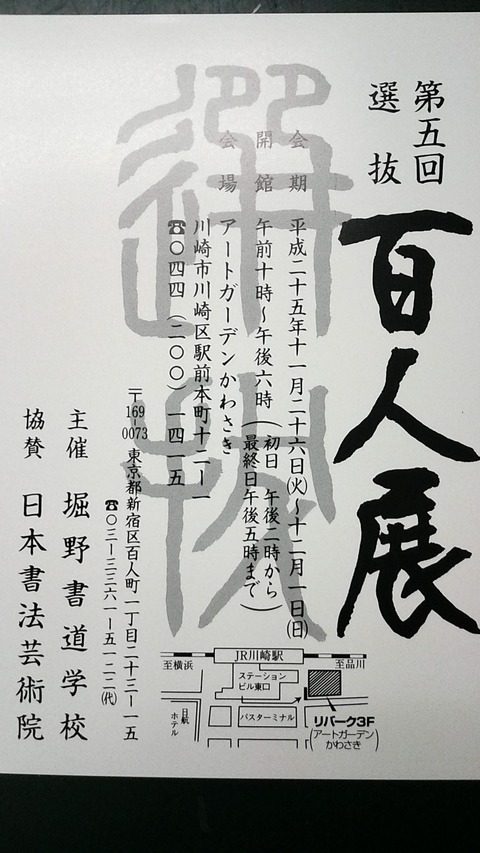 第五回
選抜
百人展
選抜
会期 平成二十五年十一月二十六日㈫〜十二月一日㈰
開館 午前十時〜午後六時(初日 午後二時から
最終日午後五時まで)
会場 アートガーデンかわさき
川崎市川崎区駅前本町十二ー一
☎〇四四(二〇〇)一四一五
〒169-0073 東京都新宿区百人町一丁目二十三ー一五
☎〇三ー三三六一ー五一二二㈹
主催 堀野書道学校
協賛 日本書法芸術院
JR川崎駅
至横浜
至品川
ステーション
ビル東口
バスターミナル
日航
ホテル
リバーク3F
(アートガーデン
かわさき)